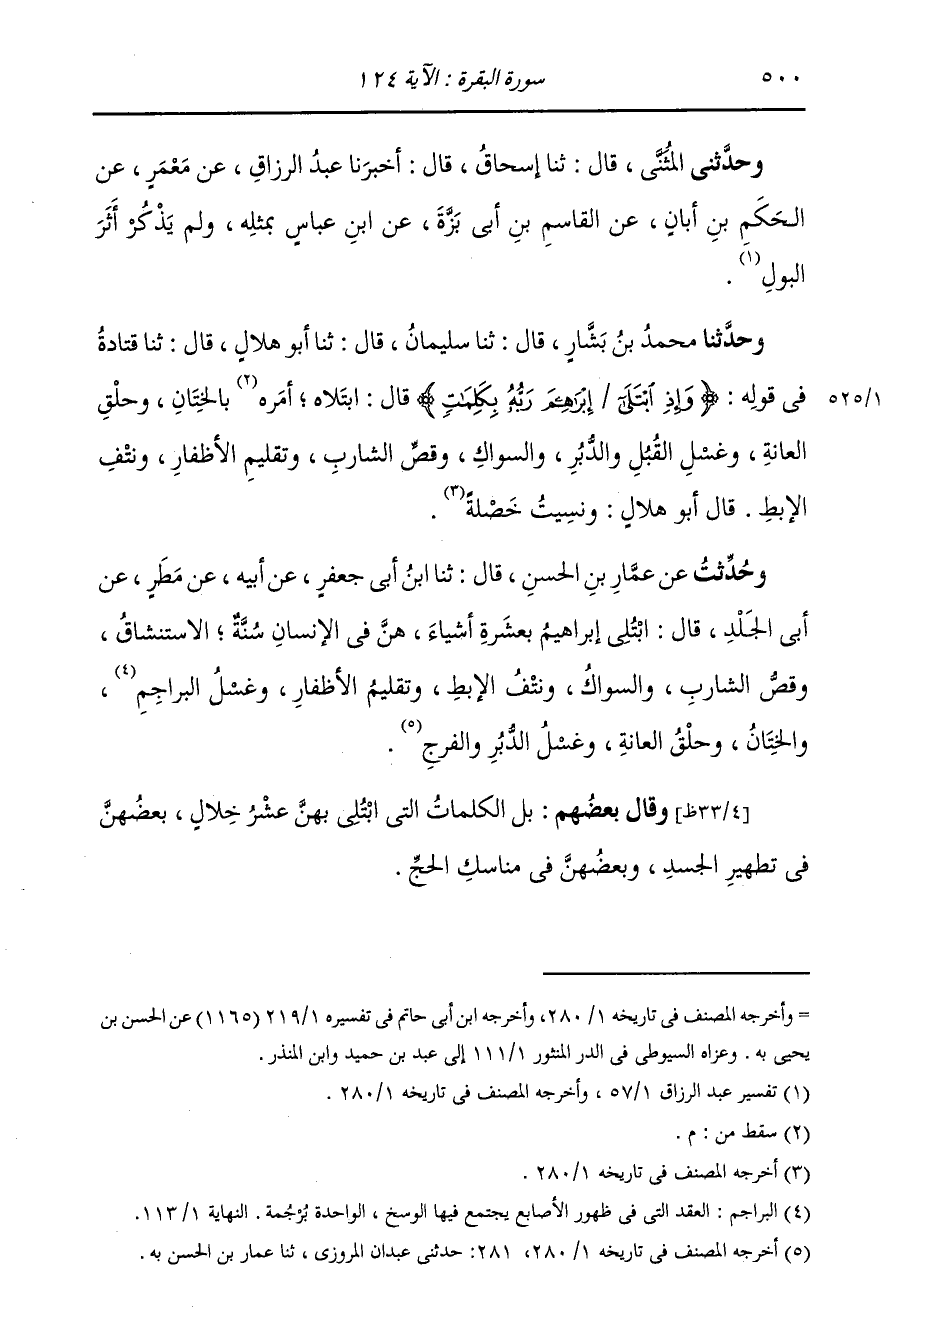 ٥٠٠ سورة البقرة : الآية ١٢٤
وحدَّثنى المُثَنَّى ، قال : ثنا إسحاقُ ، قال : أخبرَنا عبدُ الرزاقِ ، عن مَعْمَرٍ ، عن
الحَكَمِ بنِ أبانٍ ، عن القاسمِ بنِ أبى بَزَّةَ ، عن ابنِ عباسٍ بمثلِه ، ولم يَذْكُرْ أَثَرَ
البولِ(١) .
وحدَّثنا محمدُ بنُ بَشَّارٍ ، قال : ثنا سليمانُ ، قال : ثنا أبو هلالٍ ، قال : ثنا قتادةُ
٥٢٥/١ فى قولِه : ﴿ وَإِذِ ٱبْتَلَىٰٓ / إِبْرَٰهِـۧمَ رَبُّهُۥ بِكَلِمَٰتٍ ﴾ قال : ابتَلاه ؛ أمَره(٢) بالخِتَانِ ، وحلْقِ
العانةِ ، وغسْلِ القُبُلِ والدُّبُرِ ، والسواكِ ، وقصِّ الشاربِ ، وتقليمِ الأظفارِ ، ونتْفِ
الإبطِ . قال أبو هلالٍ : ونسِيتُ خَصْلةً(٣) .
وحُدِّثتُ عن عمَّارِ بنِ الحسنِ ، قال : ثنا ابنُ أبى جعفرٍ ، عن أبيه ، عن مَطَرٍ ، عن
أبى الجَلْدِ ، قال : ابْتُلِى إبراهيمُ بعشَرةِ أشياءَ ، هنَّ فى الإنسانِ سُنَّةٌ ؛ الاستنشاقُ ،
وقصُّ الشاربِ ، والسواكُ ، ونتْفُ الإبطِ ، وتقليمُ الأظفارِ ، وغسْلُ البراجِمِ(٤) ،
والخِتَانُ ، وحلْقُ العانةِ ، وغسْلُ الدُّبُرِ والفرجِ(٥) .
[٣٣/٤ظ] وقال بعضُهم : بل الكلماتُ التى ابْتُلِى بهنَّ عشْرُ خِلالٍ ، بعضُهنَّ
فى تطهيرِ الجسدِ ، وبعضُهنَّ فى مناسكِ الحجِّ .
= وأخرجه المصنف فى تاريخه ١/ ٢٨٠، وأخرجه ابن أبى حاتم فى تفسيره ٢١٩/١ (١١٦٥) عن الحسن بن
يحيى به . وعزاه السيوطى فى الدر المنثور ١١١/١ إلى عبد بن حميد وابن المنذر .
(١) تفسير عبد الرزاق ٥٧/١ ، وأخرجه المصنف فى تاريخه ٢٨٠/١ .
(٢) سقط من : م .
(٣) أخرجه المصنف فى تاريخه ٢٨٠/١ .
(٤) البراجم : العقد التى فى ظهور الأصابع يجتمع فيها الوسخ ، الواحدة بُرْجُمة . النهاية ١١٣/١.
(٥) أخرجه المصنف فى تاريخه ١/ ٢٨٠، ٢٨١: حدثنى عبدان المروزى ، ثنا عمار بن الحسن به .